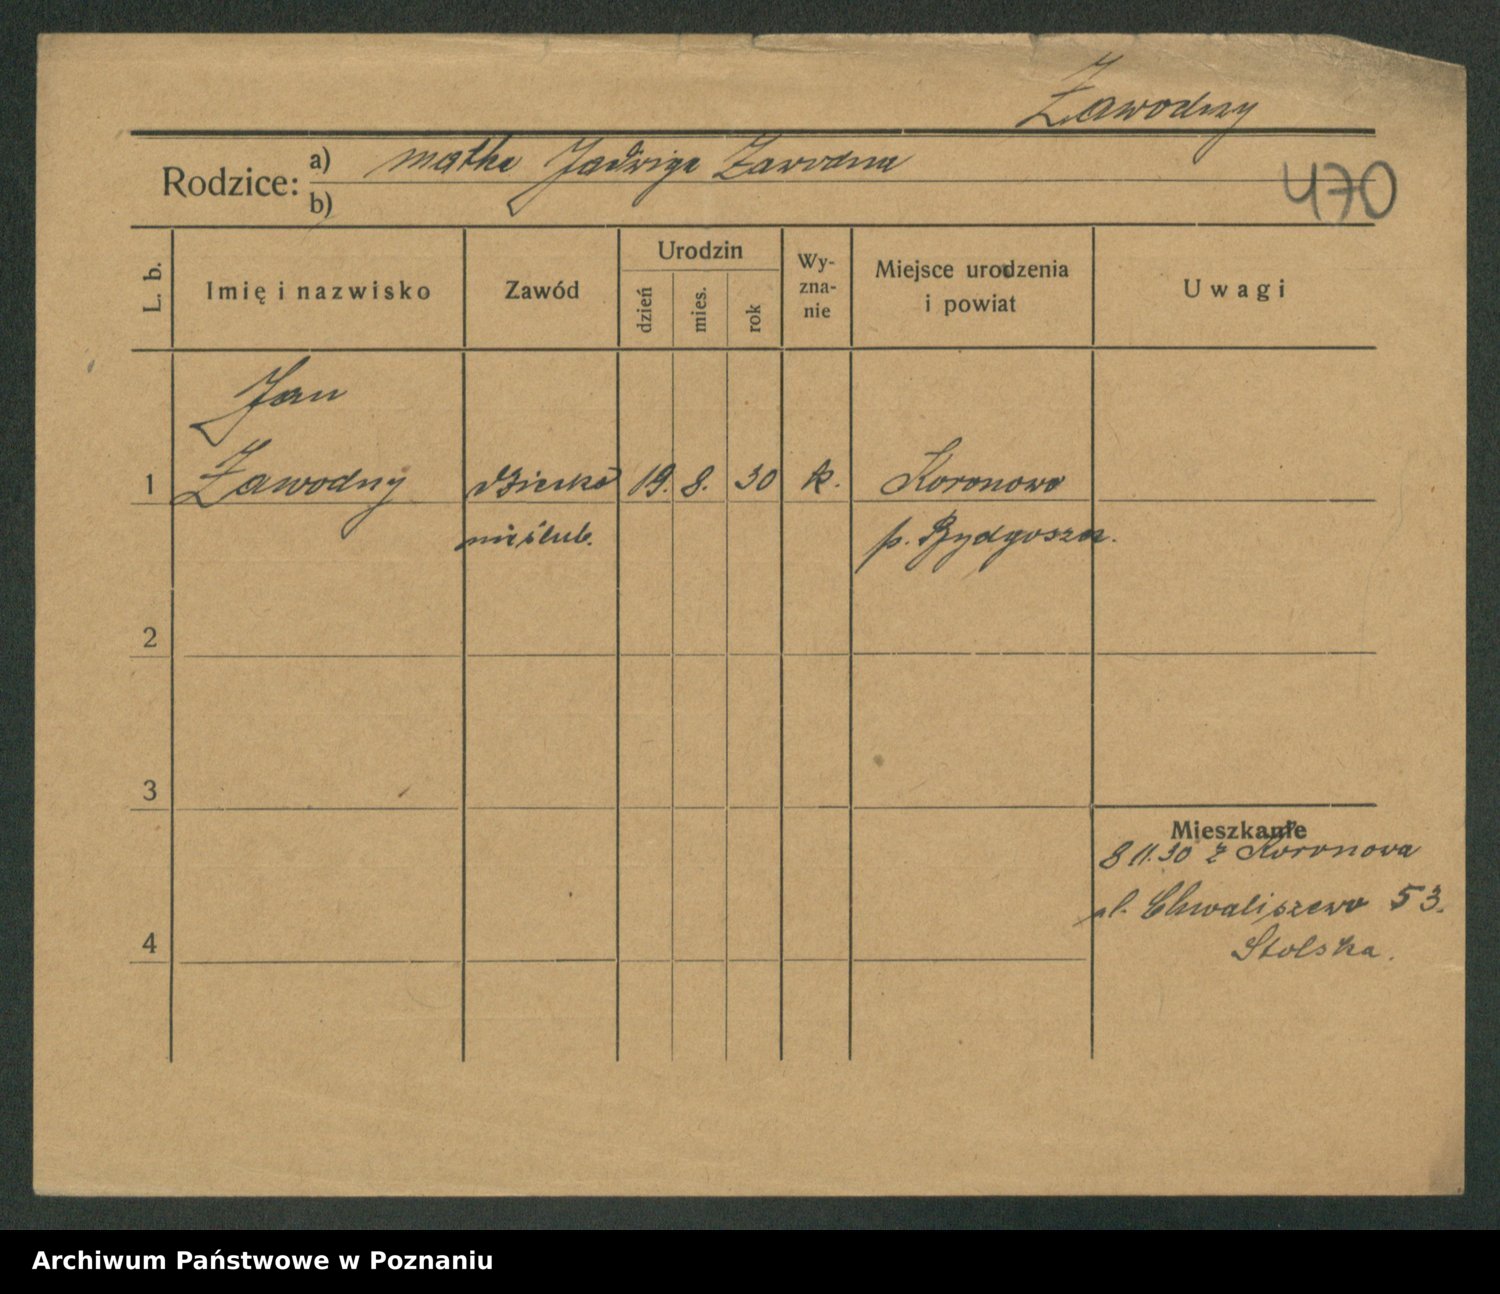 Zawodny
Rodzice: a) matka Jadwiga Zawodna
b)
470
L. b.
Imię i nazwisko
Zawód
Urodzin
dzień
mies.
rok
Wy-
zna-
nie
Miejsce urodzenia
i powiat
Uwagi
Jan
1 Zawodny dziecko 19. 8. 30 k. Koronowo
nieślub. p. Bydgoszcz.
2
3
Mieszkanie
8 11.30 z Koronowa
ul. Chwaliszewo 53.
4
Stolska.
Archiwum Państwowe w Poznaniu